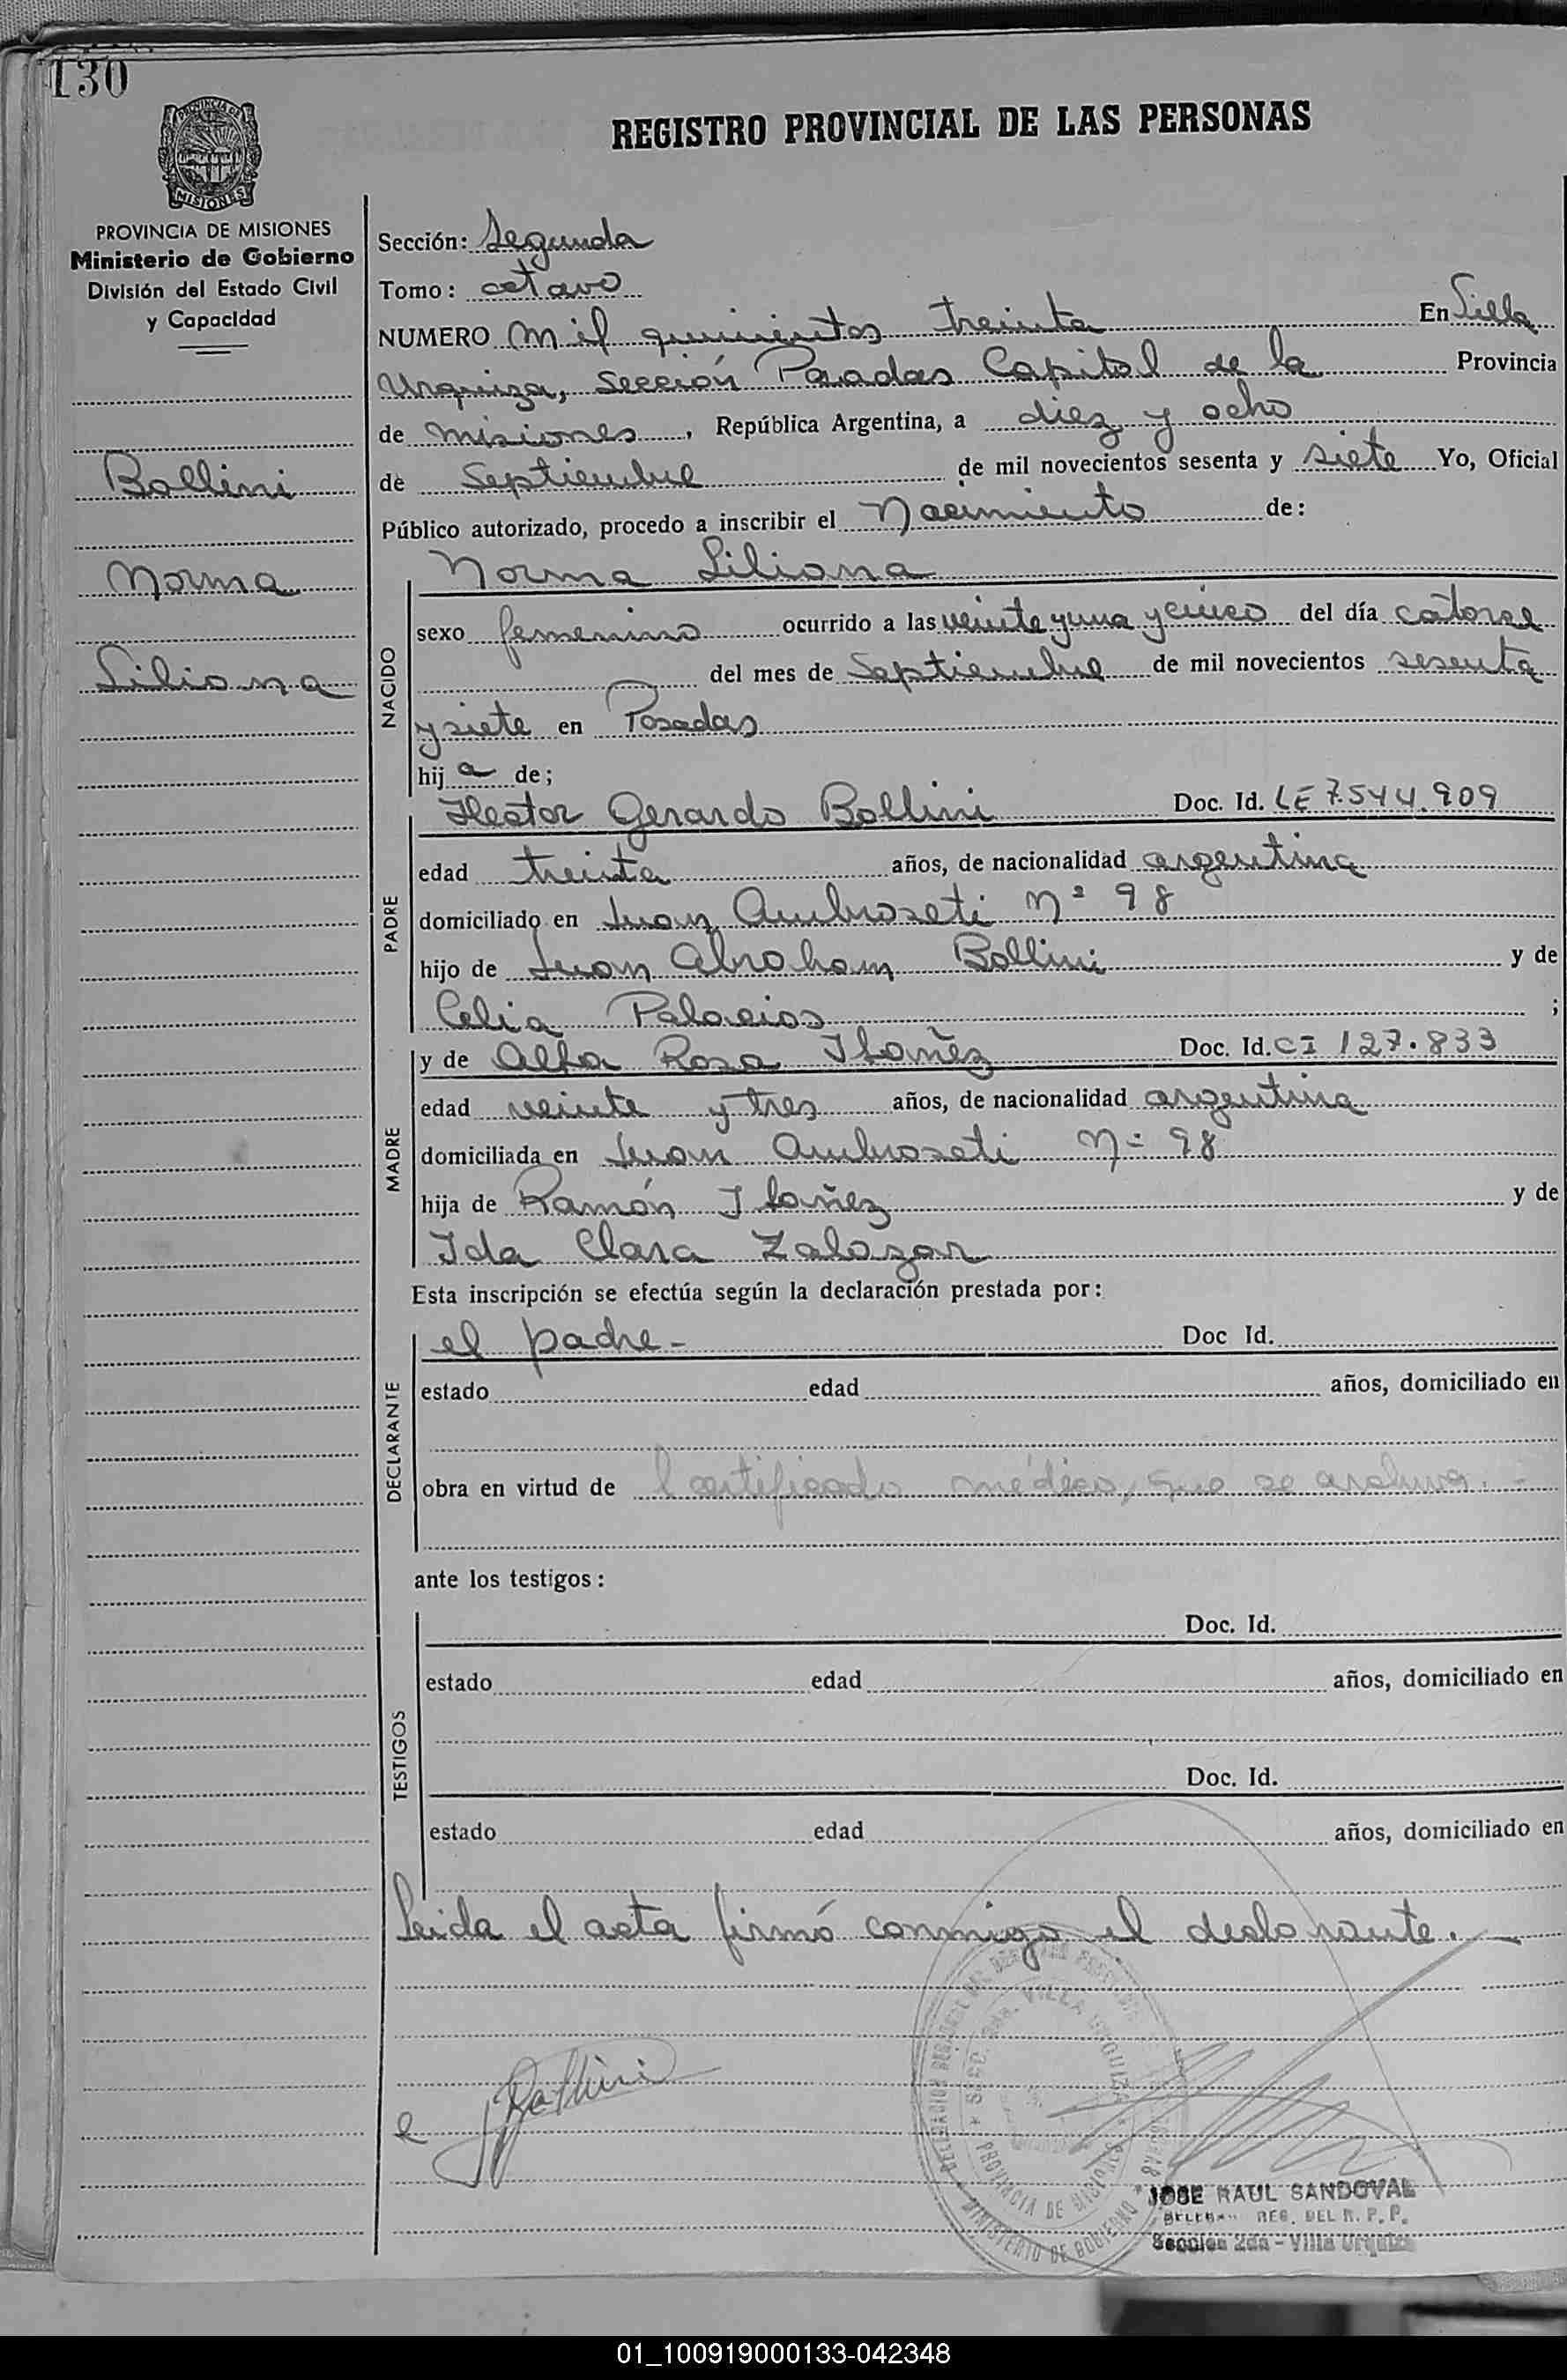 130
PROVINCIA DE MISIONES
REGISTRO PROVINCIAL DE LAS PERSONAS
PROVINCIA DE MISIONES
Ministerio de Gobierno
División del Estado Civil
y Capacidad
Bollini
Norma
Liliana
Sección: Segunda
Tomo: octavo
NUMERO mil quinientos treinta En Villa
Urquiza, Sección Posadas Capital de la Provincia
de Misiones, República Argentina, a diez y ocho
de Septiembre de mil novecientos sesenta y siete Yo, Oficial
Público autorizado, procedo a inscribir el Nacimiento de:
NACIDO
Norma Liliana
sexo femenino ocurrido a las veinte y una y cinco del día catorce
del mes de Septiembre de mil novecientos sesenta
y siete en Posadas
hija de;
PADRE
Hector Gerardo Bollini Doc. Id. LE 7.544.909
edad treinta años, de nacionalidad argentina
domiciliado en Juan Ambroseti Nº 98
hijo de Juan Abraham Bollini y de
Celia Palacios ;
MADRE
y de Alba Rosa Ibañez Doc. Id. CI 127.833
edad veinte y tres años, de nacionalidad argentina
domiciliada en Juan Ambroseti Nº 98
hija de Ramón Ibañez y de
Ida Clara Zalazar
Esta inscripción se efectúa según la declaración prestada por:
DECLARANTE
el padre- Doc Id.
estado edad años, domiciliado en
obra en virtud de l certificado médico, que se archiva.-
ante los testigos:
TESTIGOS
Doc. Id.
estado edad años, domiciliado en
Doc. Id.
estado edad años, domiciliado en
Leida el acta firmó conmigo el declarante.
Bollini
VILLA URQUIZA
PROVINCIA DE MISIONES
MINISTERIO DE GOBIERNO
JOSE RAUL SANDOVAL
REG. DEL R. P. P.
Sección 2da - Villa Urquiza
01_100919000133-042348